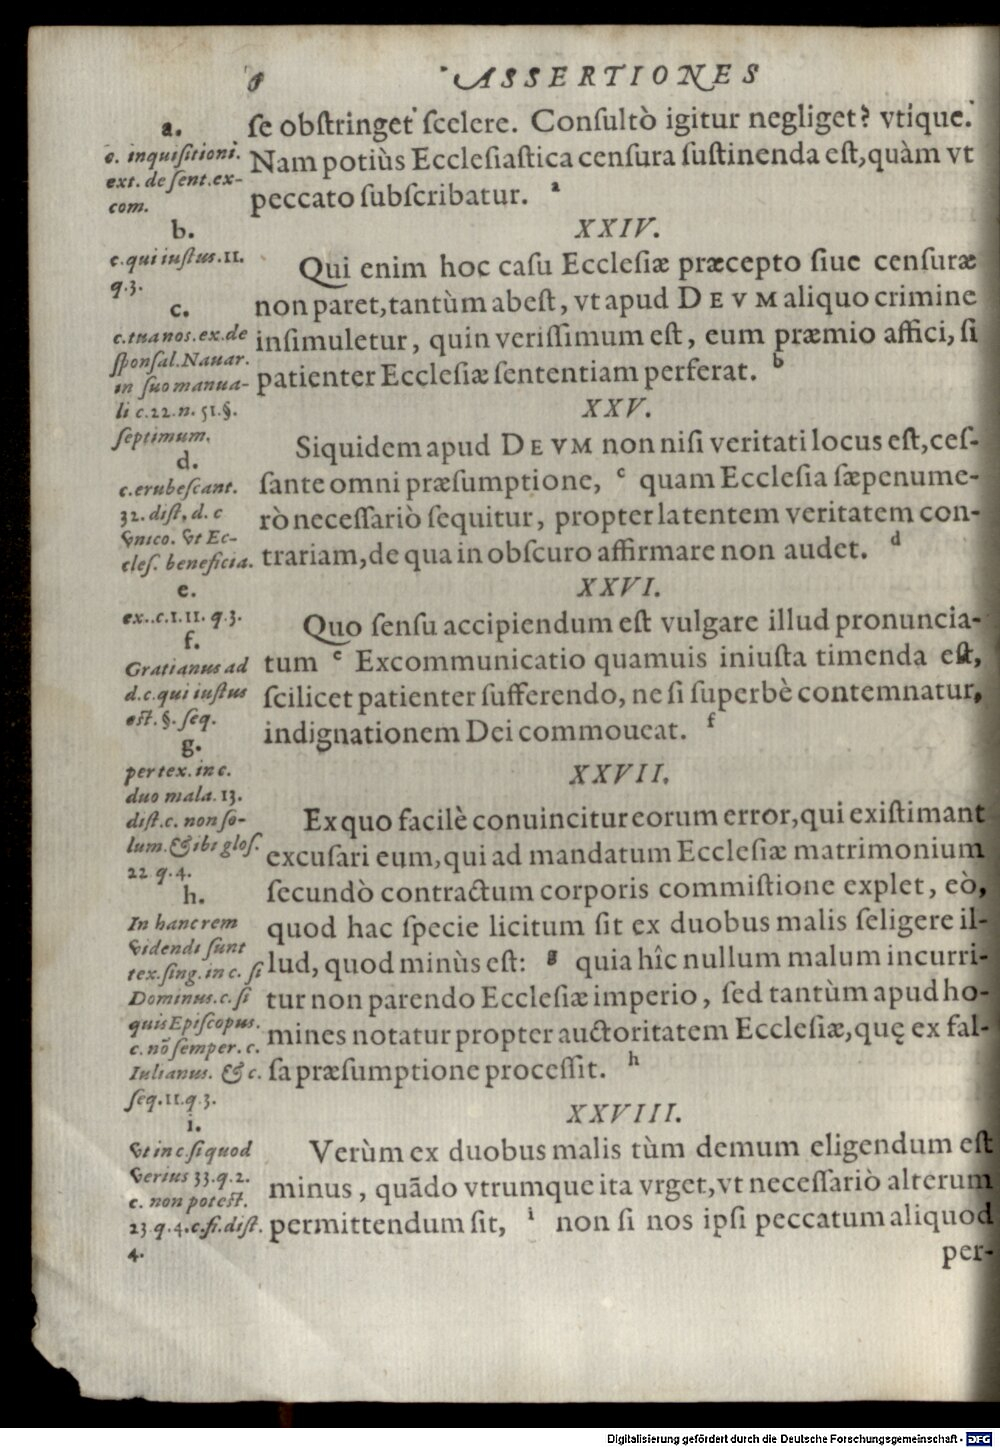 ASSERTIONES
se obstringet scelere. Consultò igitur negliget? vtique.
Nam potiùs Ecclesiastica censura sustinenda est, quàm vt
peccato subscribatur. a
XXIV.
Qui enim hoc casu Ecclesiæ præcepto siue censuræ
non paret, tantùm abest, vt apud DEVM aliquo crimine
insimuletur, quin verissimum est, eum præmio affici, si
patienter Ecclesiæ sententiam perferat. b
XXV.
Siquidem apud DEVM non nisi veritati locus est, ces-
sante omni præsumptione, c quam Ecclesia sæpenume-
rò necessariò sequitur, propter latentem veritatem con-
trariam, de qua in obscuro affirmare non audet. d
XXVI.
Quo sensu accipiendum est vulgare illud pronuncia-
tum e Excommunicatio quamuis iniusta timenda est,
scilicet patienter sufferendo, ne si superbè contemnatur,
indignationem Dei commoueat. f
XXVII.
Ex quo facilè conuincitur eorum error, qui existimant
excusari eum, qui ad mandatum Ecclesiæ matrimonium
secundò contractum corporis commistione explet, eò,
quod hac specie licitum sit ex duobus malis seligere il-
lud, quod minùs est: g quia hîc nullum malum incurri-
tur non parendo Ecclesiæ imperio, sed tantùm apud ho-
mines notatur propter auctoritatem Ecclesiæ, quę ex fal-
sa præsumptione processit. h
XXVIII.
Verùm ex duobus malis tùm demum eligendum est
minus, quãdo vtrumque ita vrget, vt necessariò alterum
permittendum sit, i non si nos ipsi peccatum aliquod
per-
a.
c. inquisitioni.
ext. de sent. ex-
com.
b.
c. qui iustus. 11.
q. 3.
c.
c. tua nos. ex. de
sponsal. Nauar.
in suo manua-
li c. 22. n. 51. §.
septimum.
d.
c. erubescant.
32. dist, d. c
vnico. vt Ec-
cles. beneficia.
e.
ex. c. 1. 11. q. 3.
f.
Gratianus ad
d. c. qui iustus
est. §. seq.
g.
per tex. in c.
duo mala. 13.
dist. c. non so-
lum. & ibi glos.
22 q. 4.
h.
In hanc rem
videndi sunt
tex. sing. in c. si
Dominus. c. si
quis Episcopus.
c. nõ semper. c.
Iulianus. & c.
seq. 11. q. 3.
i.
vt in c. si quod
verius 33. q. 2.
c. non potest.
23. q. 4. c. si. dist.
4.
Digitalisierung gefördert durch die Deutsche Forschungsgemeinschaft - DFG